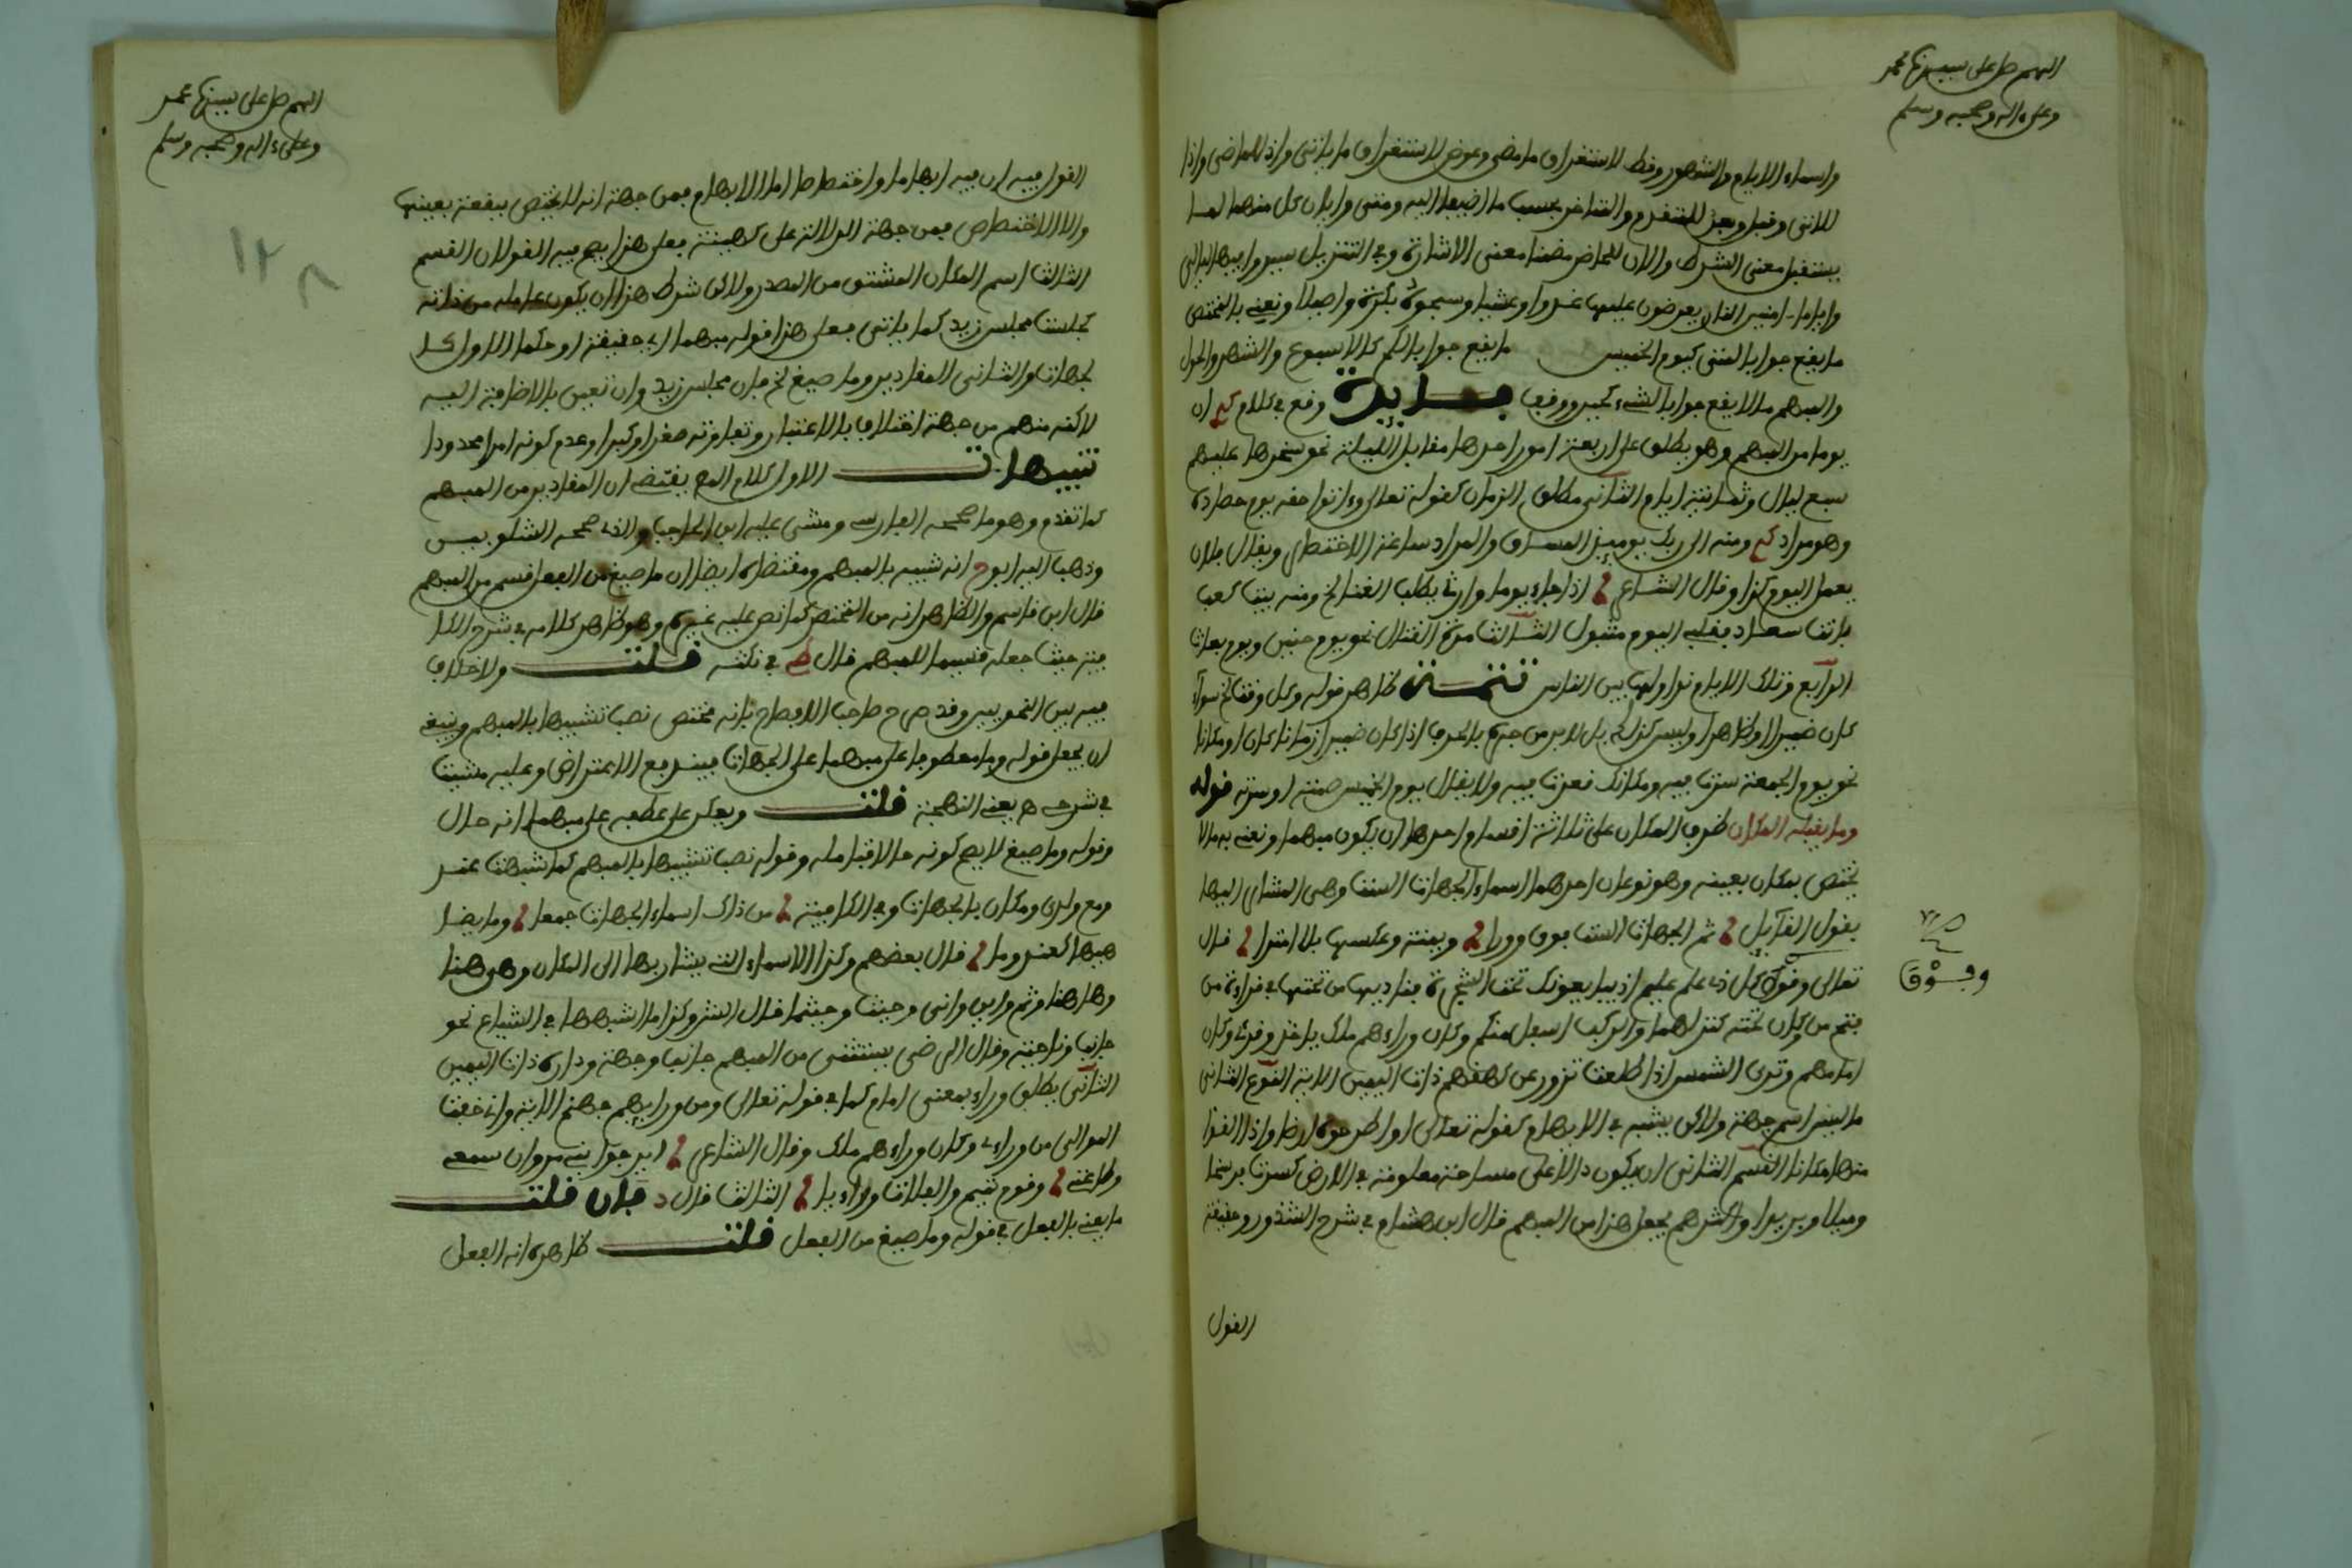 اللهم صل على سيدنا محمد
وعلى ءاله وصحبه وسلم
واسماء الايام والشهور وقط لاستغراق ما مضى وعوض لاستغراق ما ياتي واذ للماضي واذا
للاتي وقبل وبعد للمتقدم والمتاخر بحسب ما اضيفا اليه ومتى وايان كل منهما لما
يستقبل معنى الشرط والان للحاضر مضمنا معنى الاشارة وفي التنزيل سيروا فيها ليالي
واياما ءامنين النار يعرضون عليها غدوا وعشيا وسبحوه بكرة واصيلا ونعني بالمختص
ما يقع جوابا لمتى كيوم الخميس ما يقع جوابا لكم كالاسبوع والشهر والحول
والمبهم ما لا يقع جوابا لشيء كحين ووقت فايدة وقع في كلام ان
يوما من المبهم وهو يطلق على اربعة امور احدها مقابل الليلة نحو سخرها عليهم
سبع ليال وثمانية ايام الثاني مطلق الزمان كقوله تعالى وءاتوا حقه يوم حصاده
وهو مراد ومنه الى ربك يوميذ المساق والمراد ساعة الاختصار ويقال فلان
يعمل اليوم كذا وقال الشاعر اذا جاء يوما وارثي يطلب الغنا الخ ومنه بيت كعب
بانت سعاد فقلبي اليوم متبول الثالث مدة القتال نحو يوم حنين ويوم بعاث
الرابع وتلك الايام نداولها بين الناس تتمة ظاهر قوله وكل وقت الخ سواء
كان ضميرا او ظاهرا وليس كذلك بل لابد من جره بالحرف اذا كان ضميرا زمانا كان او مكانا
نحو يوم الجمعة سرت فيه ومكانك قعدت فيه ولا يقال يوم الخميس صمته او سرته قوله
وما يقبله المكان ظرف المكان على ثلاثة اقسام احدها ان يكون مبهما ونعني به ما لا
يختص بمكان بعينه وهو نوعان احدهما اسماء الجهات الست وهي المشار اليها
بقول القائل ثم الجهات الست فوق وورا ويمنة وعكسها بلا امترا قال
تعالى وفوق كل ذي علم عليم اذ يبايعونك تحت الشجرة فناديها من تحتها في قراءة من
فتح من وكان تحته كنز لهما والركب اسفل منكم وكان وراءهم ملك ياخذ وقرئ وكان
امامهم وترى الشمس اذا طلعت تزور عن كهفهم ذات اليمين الاية النوع الثاني
ما ليس اسم جهة ولاكن يشبهه في الابهام كقوله تعالى او اطرحوه ارضا واذا القوا
منها مكانا القسم الثاني ان يكون دالا على مساحة معلومة في الارض كسرت فرسخا
وميلا وبريدا واكثرهم يجعل هذا من المبهم قال ابن هشام في شرح الشذور وحقيقة
القول
وفوق
اللهم صل على سيدنا محمد
وعلى ءاله وصحبه وسلم
١٢٨
القول فيه ان فيه ابهاما واختصاصا اما الابهام فمن جهة انه لا يختص ببقعة بعينها
واما الاختصاص فمن جهة الدلالة على كمية فعلى هذا يصح فيه القولان القسم
الثالث اسم المكان المشتق من المصدر ولاكن شرط هذا ان يكون عامله من مادته
كجلست مجلس زيد كما ياتي فعلى هذا قوله مبهما اي حقيقة او حكما الاول كا
لجهات والثاني المقادير وما صيغ الخ فان مجلس زيد وان تعين بالاضافة اليه
لاكنه مبهم من جهة اختلاف بالاعتبار وتفاوته صغرا وكبرا وعدم كونه امرا محدودا
تنبيهات الاول كلام المص يقتضي ان المقادير من المبهم
كما تقدم وهو ما صححه الفارسي ومشى عليه ابن الحاجب والذي صححه الشلوبين
وذهب اليه ابوح انه شبيه بالمبهم ومقتضاه ايضا ان ما صيغ من الفعل قسم من المبهم
قال ابن قاسم والظاهر انه من المختص كما نص عليه غيره وهو ظاهر كلامه في شرح الكا
فية حيث جعله قسيما للمبهم قال في نكته قلت ولا خلاف
فيه بين النحويين وقد صرح صاحب الافصاح بانه مختص نصب تشبيها بالمبهم وينبغي
ان يجعل قوله وما معطوفا على مبهما على الجهات فيندفع الاعتراض وعليه مشيت
في شرحه يعني البهجة قلت ويعكر على عطفه على مبهما انه حال
وقوله وما صيغ لا يصح كونه حالا فتامله وقوله نصب تشبيها بالمبهم كما شبهت عند
ومع ولدى ومكان بالجهات وفي الكافية من ذاك اسماء الجهات جمعا وما يضا
هيها كعند وما قال بعضهم وكذا الاسماء التي يشار بها الى المكان وهي هنا
وهاهنا وثم واين وانى وحيث وحيثما قال وكذا ما اشبهها في الشياع نحو
جانب وناحية وقال الرضي يستثنى من المبهم جانب وجهة وداره ذات اليمين
الثاني يطلق وراء بمعنى امام كما في قوله تعالى ومن ورايهم جهنم الاية واني خفت
الموالي من وراءي وكان وراءهم ملك وقال الشاعر ايرجوا بني مروان سمعي
وطاعتي وقوم تميم والفلاة وراءيا الثالث قال د فان قلت
ما يعني بالفعل في قوله وما صيغ من الفعل قلت ظاهره انه الفعل